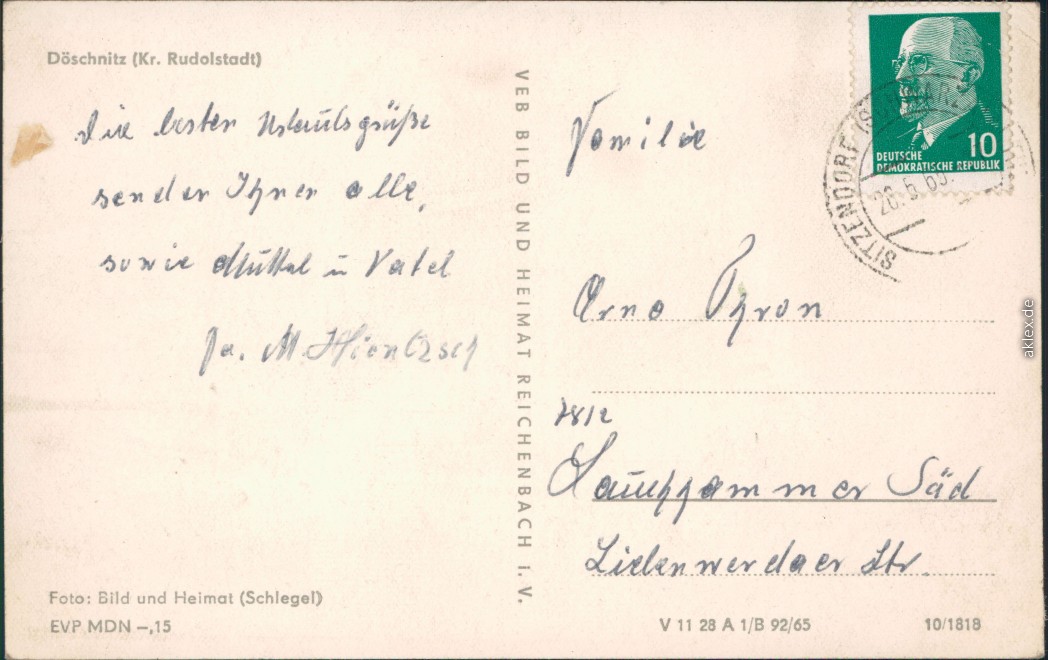 Döschnitz (Kr. Rudolstadt)
Die besten Urlaubsgrüße
senden Ihnen alle,
sowie Muttel u Vatel
Fa. M. Hientzsch
Foto: Bild und Heimat (Schlegel)
EVP MDN –,15
VEB BILD UND HEIMAT REICHENBACH I. V.
10
DEUTSCHE
DEMOKRATISCHE REPUBLIK
SITZENDORF
26.6.65
Familie
Arno Thron
7812
Lauchhammer Süd
Liebenwerdaer Str.
V 11 28 A 1/B 92/65
10/1818
aklex.de